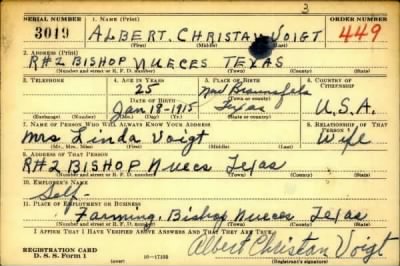 3
SERIAL NUMBER 1. NAME (Print) ORDER NUMBER
3019 ALBERT CHRISTAN VOIGT 449
(First) (Middle) (Last)
2. ADDRESS (Print)
R#2 BISHOP NUECES TEXAS
(Number and street or R. F. D. number) (Town) (County) (State)
3. TELEPHONE 4. AGE IN YEARS 5. PLACE OF BIRTH 6. COUNTRY OF CITIZENSHIP
25 New Braunsfels
DATE OF BIRTH (Town or county)
Jan 18-1915 Texas U.S.A.
(Mo.) (Day) (Yr.) (State or country)
7. NAME OF PERSON WHO WILL ALWAYS KNOW YOUR ADDRESS 8. RELATIONSHIP OF THAT PERSON
Mrs Linda Voigt Wife
(Mr., Mrs., Miss) (First) (Middle) (Last)
9. ADDRESS OF THAT PERSON
R#2 BISHOP Nueces Texas
(Number and street or R. F. D. number) (Town) (County) (State)
10. EMPLOYER'S NAME
Self-
11. PLACE OF EMPLOYMENT OR BUSINESS
Farming, Bishop Nueces Texas
(Number and street or R. F. D. number) (Town) (County) (State)
I AFFIRM THAT I HAVE VERIFIED ABOVE ANSWERS AND THAT THEY ARE TRUE.
Albert Christan Voigt
REGISTRATION CARD
D. S. S. Form 1 (over) 16-17105 (Registrant's signature)